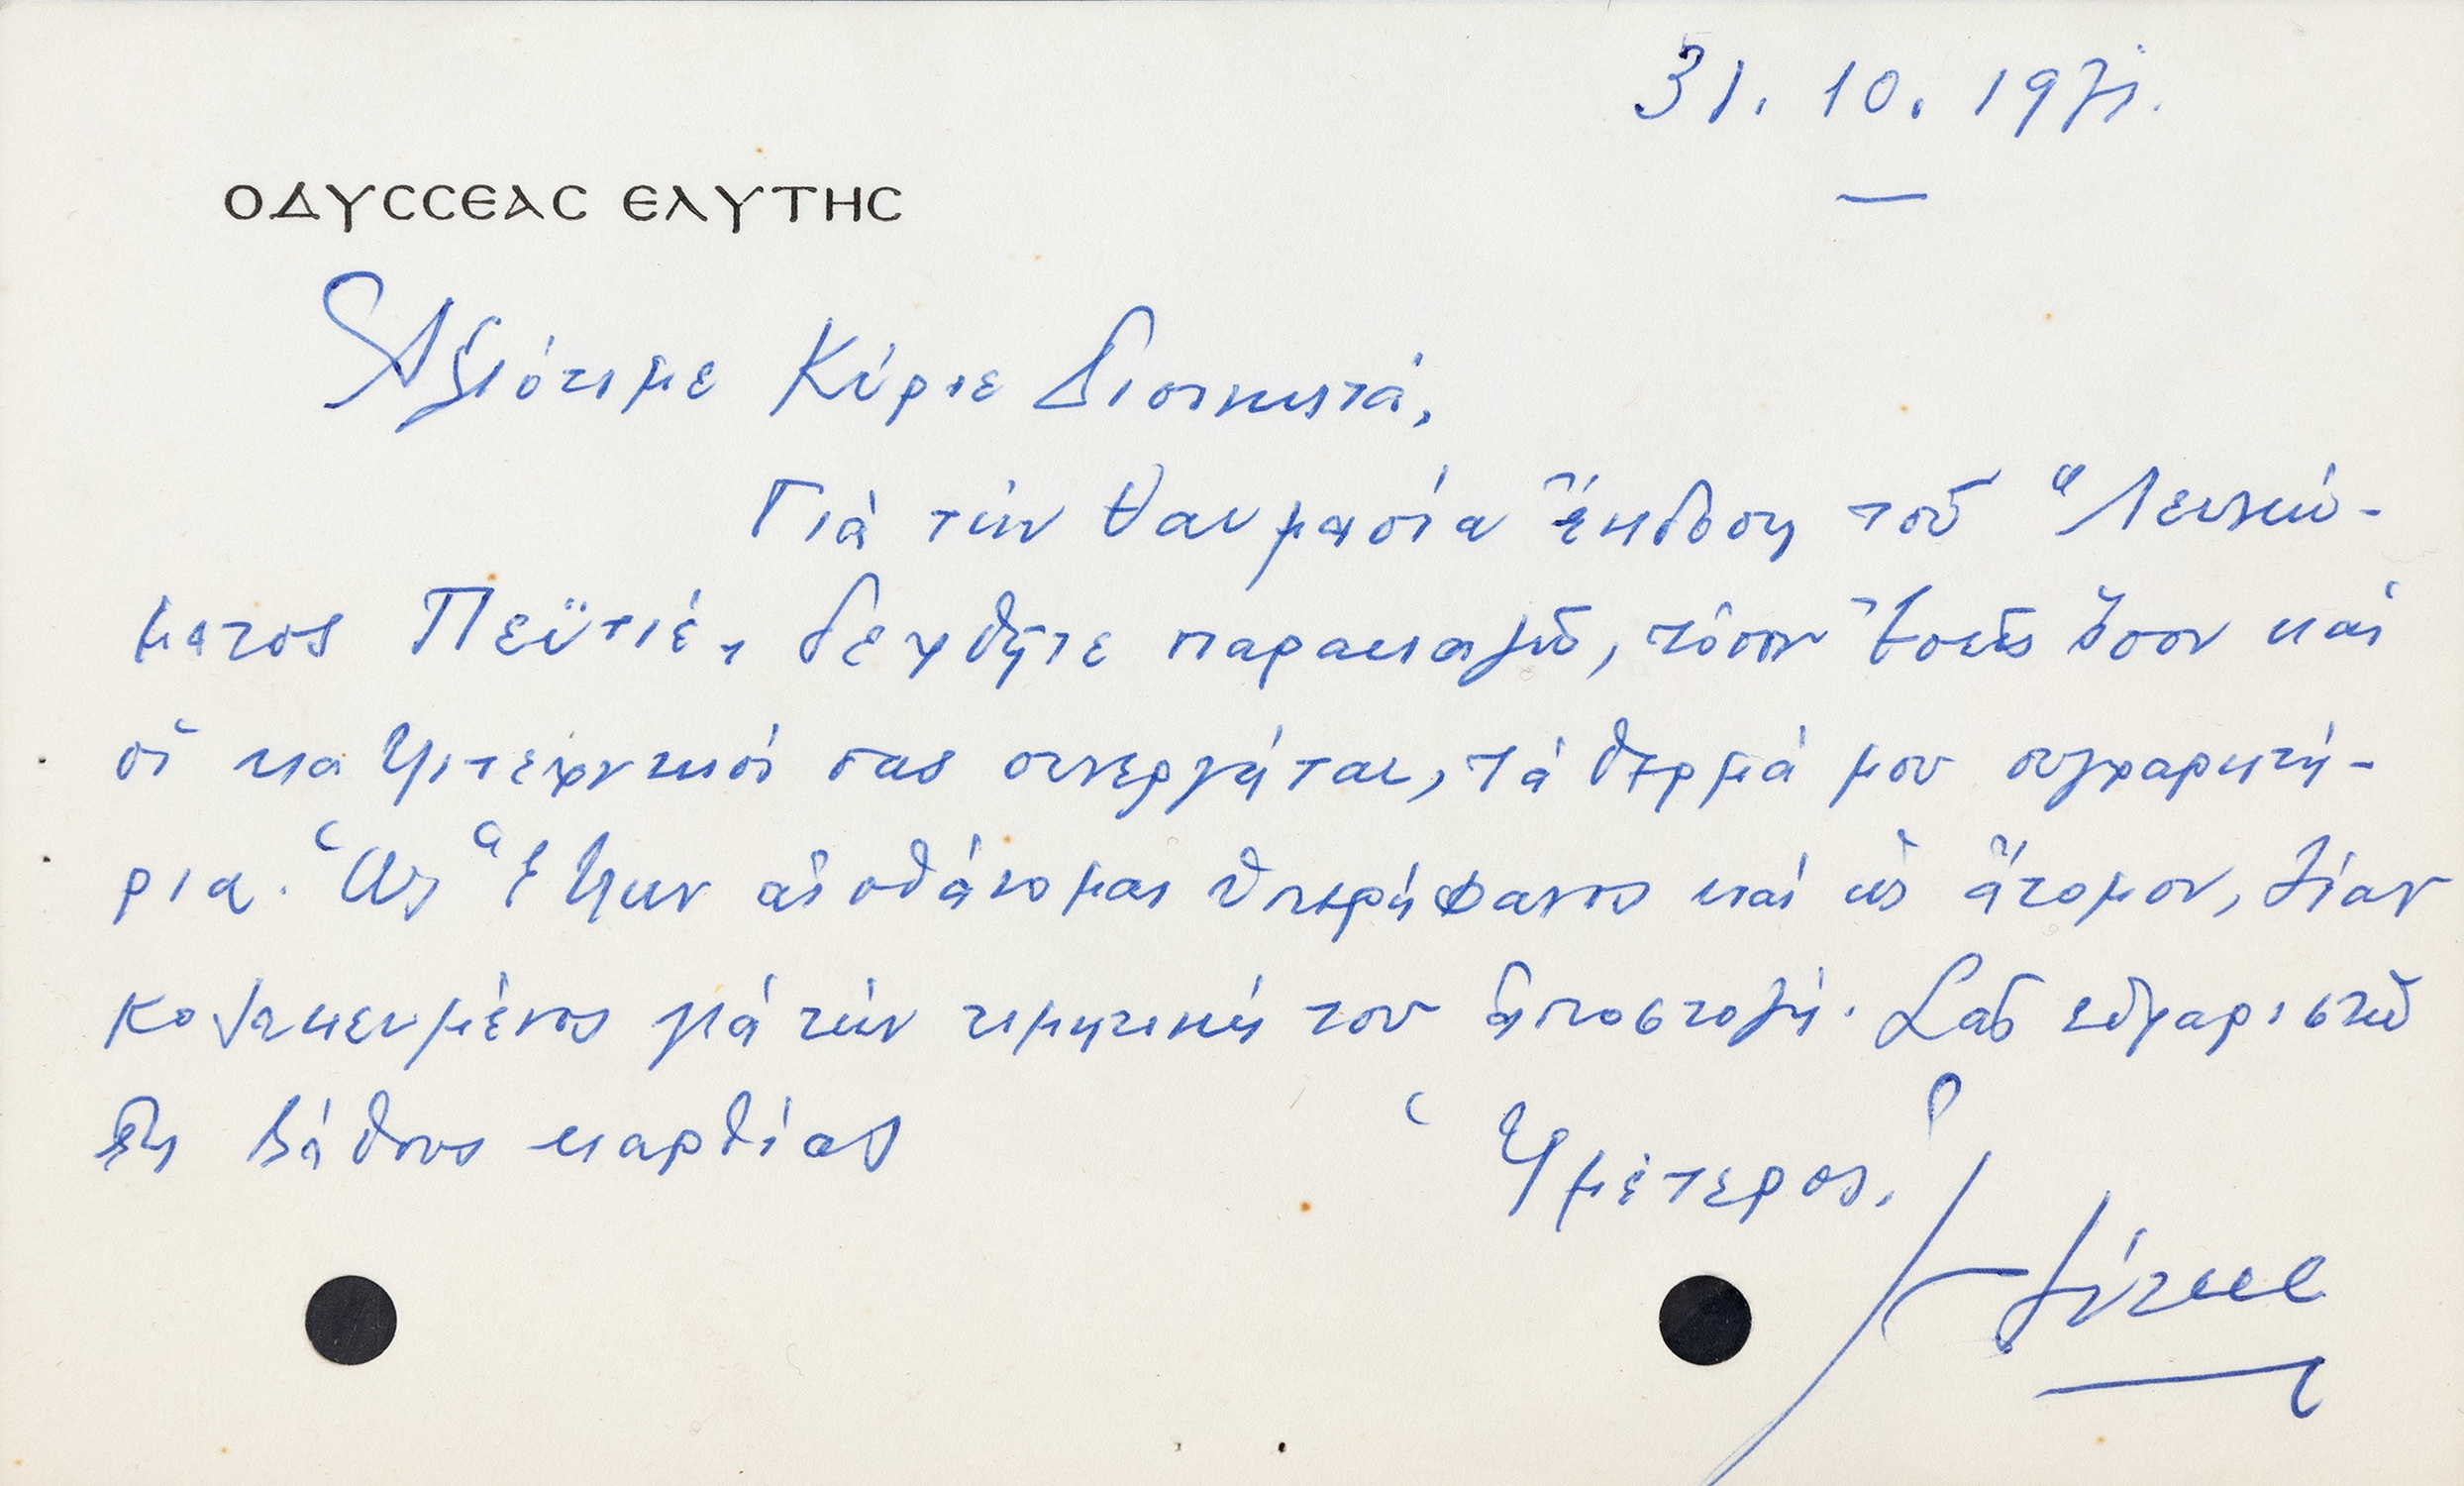 31. 10. 1971.
ΟΔΥССΕΑС ΕΛΥΤΗС
Ἀξιότιμε Κύριε Διοικητά,
Γιά τήν θαυμασία ἔκδοση τοῦ "Λευκώ-
ματος Πεϋτιέ, δεχθῆτε παρακαλῶ, τόσον Ἐσεῖς ὅσον καί
οἱ καλλιτεχνικοί σας συνεργάται, τά θερμά μου συγχαρητή-
ρια. Ὡς Ἕλλην αἰσθάνομαι ὑπερήφανος καί ὡς ἄτομον, λίαν
κολακευμένος γιά τήν τιμητική του ἀποστολή. Σᾶς εὐχαριστῶ
ἐκ βάθους καρδίας
Ὑμέτερος,